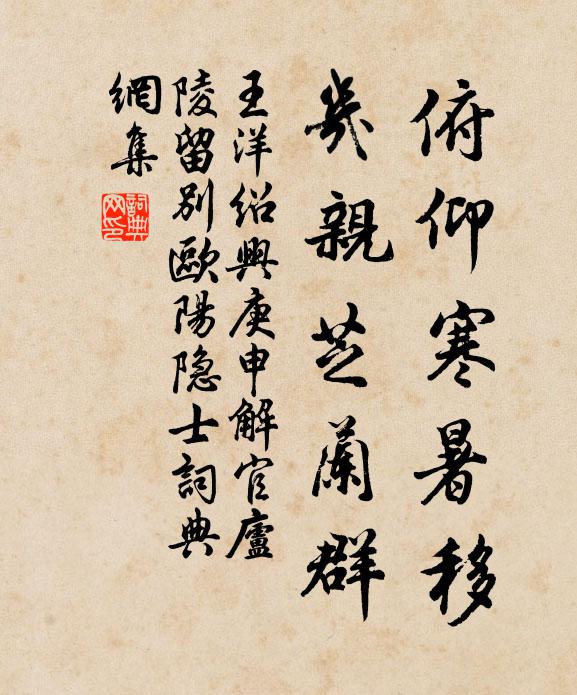 俯仰寒暑移
幾親芝蘭群
王洋紹興庚申解官廬
陵留別歐陽隐士詞典
網集
詞典網印